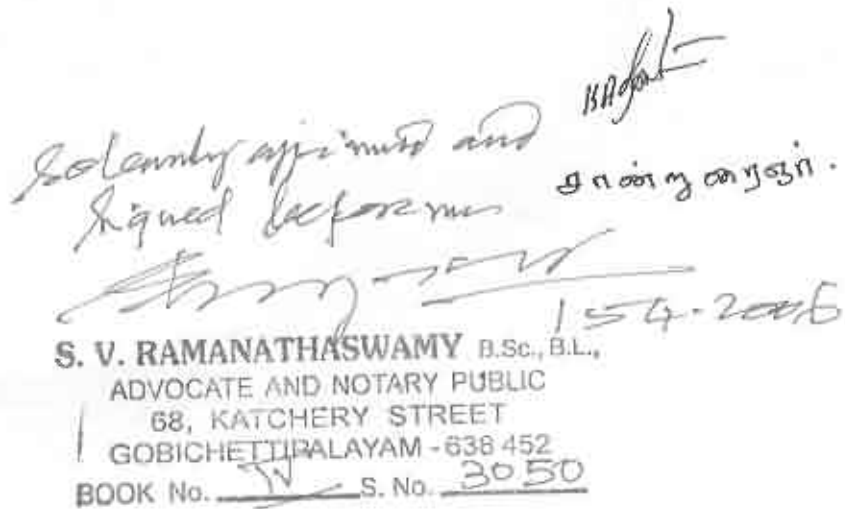 Solemnly affirmed and
Signed before me
சான்றுரைஞர்.
15-4-2006
S. V. RAMANATHASWAMY B.Sc., B.L.,
ADVOCATE AND NOTARY PUBLIC
68, KATCHERY STREET
GOBICHETTIPALAYAM - 638 452
BOOK No. IV S. No. 3050